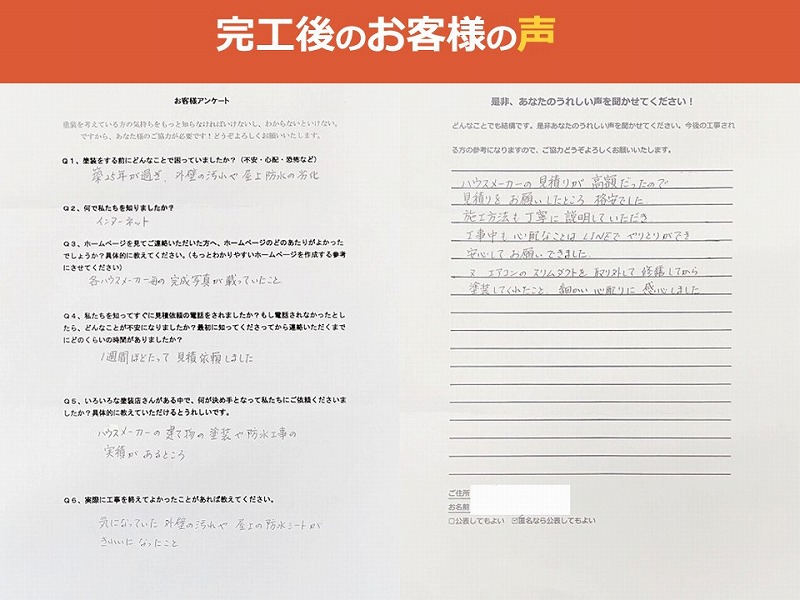 完工後のお客様の声
お客様アンケート
塗装を考えている方の気持ちをもっと知らなければいけないし、わからないといけない。
ですから、あなた様のご協力が必要です！どうぞよろしくお願いいたします。
Q１、塗装をする前にどんなことで困っていましたか？（不安・心配・恐怖など）
築25年が過ぎ、外壁の汚れや屋上防水の劣化
Q２、何で私たちを知りましたか？
インターネット
Q３、ホームページを見てご連絡いただいた方へ、ホームページのどのあたりがよかった
でしょうか？具体的に教えてください。（もっとわかりやすいホームページを作成する参考
にさせてください）
各ハウスメーカー毎の完成写真が載っていたこと
Q４、私たちを知ってすぐに見積依頼の電話をされましたか？もし電話されなかったとし
たら、どんなことが不安になりましたか？最初に知ってくださってから連絡いただくまで
にどのくらいの時間がありましたか？
1週間ほどたって見積依頼しました
Q５、いろいろな塗装店さんがある中で、何が決め手となって私たちにご依頼くださいま
したか？具体的に教えていただけるとうれしいです。
ハウスメーカーの建て物の塗装や防水工事の
実積があるところ
Q６、実際に工事を終えてよかったことがあれば教えてください。
気になっていた外壁の汚れや屋上の防水シートが
きれいになったこと
是非、あなたのうれしい声を聞かせてください！
どんなことでも結構です。是非あなたのうれしい声を聞かせてください。今後の工事され
る方の参考になりますので、ご協力どうぞよろしくお願いいたします。
ハウスメーカーの見積りが高額だったので
見積りをお願いしたところ格安でした
施工方法も丁寧に説明していただき
工事中も心配なことはLINEでやりとりができ
安心してお願いできました.
又エアコンのスリムダクトを取り外して修繕してから
塗装してくれたこと、細かい心配りに感心しました
ご住所
お名前
□公表してもよい ☑匿名なら公表してもよい